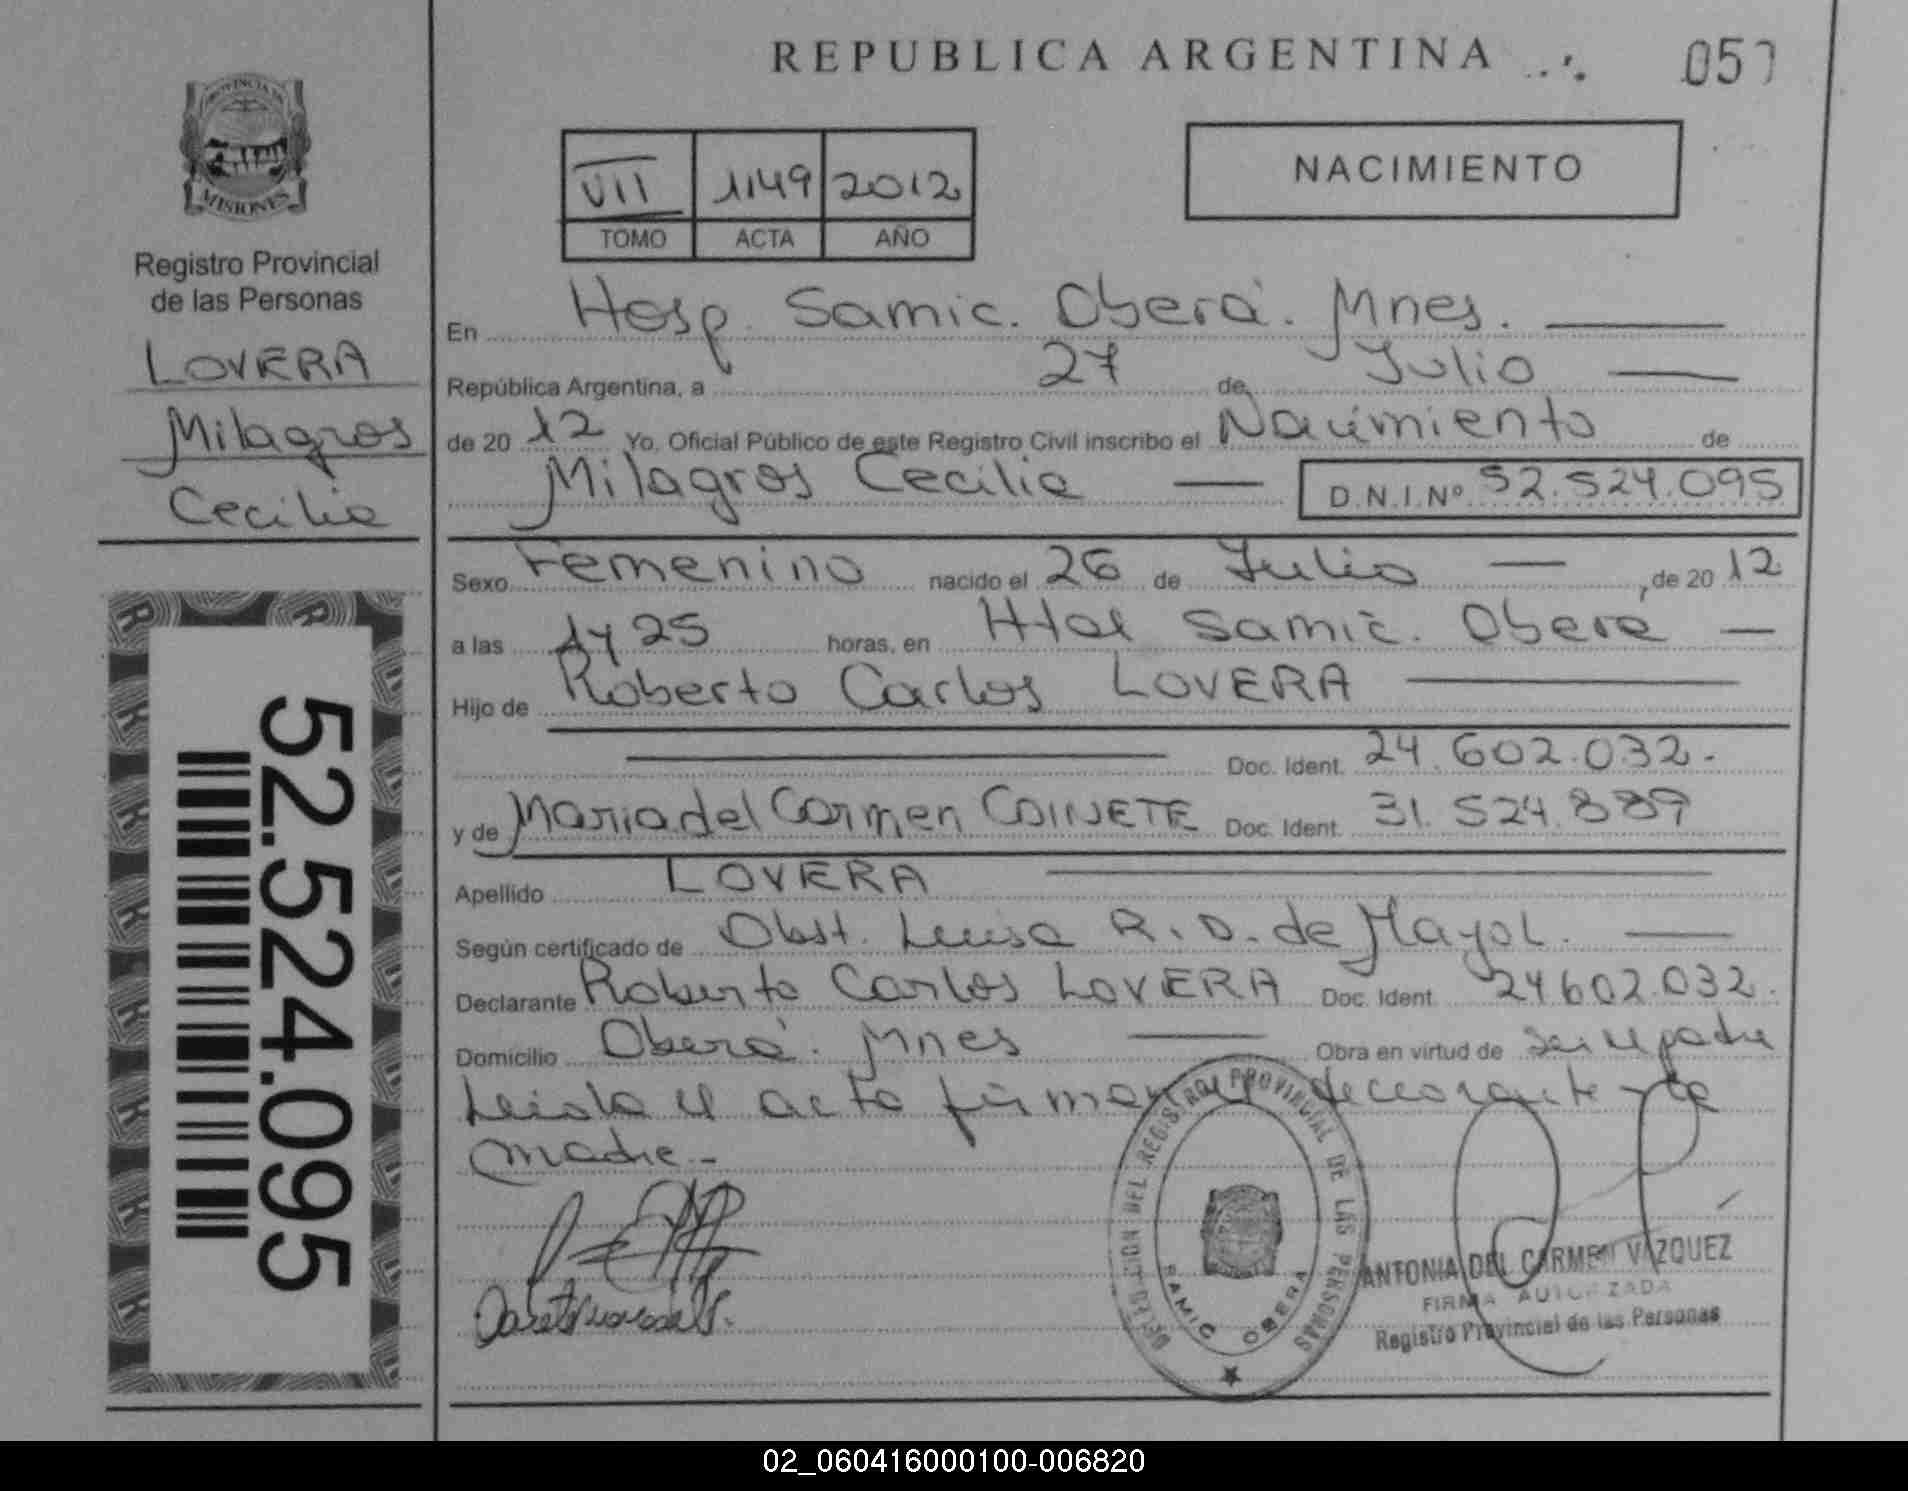 REPUBLICA ARGENTINA
PROVINCIA DE
MISIONES
Registro Provincial
de las Personas
LOVERA
Milagros
Cecilia
52.524.095
VII 1149 2012
TOMO ACTA AÑO
NACIMIENTO
En Hosp. Samic. Oberá. Mnes.
República Argentina, a 27 de Julio
de 20 12 Yo, Oficial Público de este Registro Civil inscribo el Nacimiento de
Milagros Cecilia D.N.I.Nº 52.524.095
Sexo Femenino nacido el 26 de Julio, de 20 12
a las 1 y 25 horas, en Htal Samic. Oberá
Hijo de Roberto Carlos LOVERA
Doc. Ident. 24.602.032.
y de Maria del Carmen Doc. Ident. 31.524.889
Apellido LOVERA
Según certificado de Obst. Luisa R. D. de Mayol.
Declarante Roberto Carlos LOVERA Doc. Ident 24602.032.
Domicilio Oberá. Mnes Obra en virtud de ser el padre
Leida el acta firman el declarante y la
madre.-
DELEGACION DEL REGISTRO PROVINCIAL DE LAS PERSONAS
SAMIC OBERA
ANTONIA DEL CARMEN VAZQUEZ
FIRMA AUTORIZADA
Registro Provincial de las Personas
02_060416000100-006820